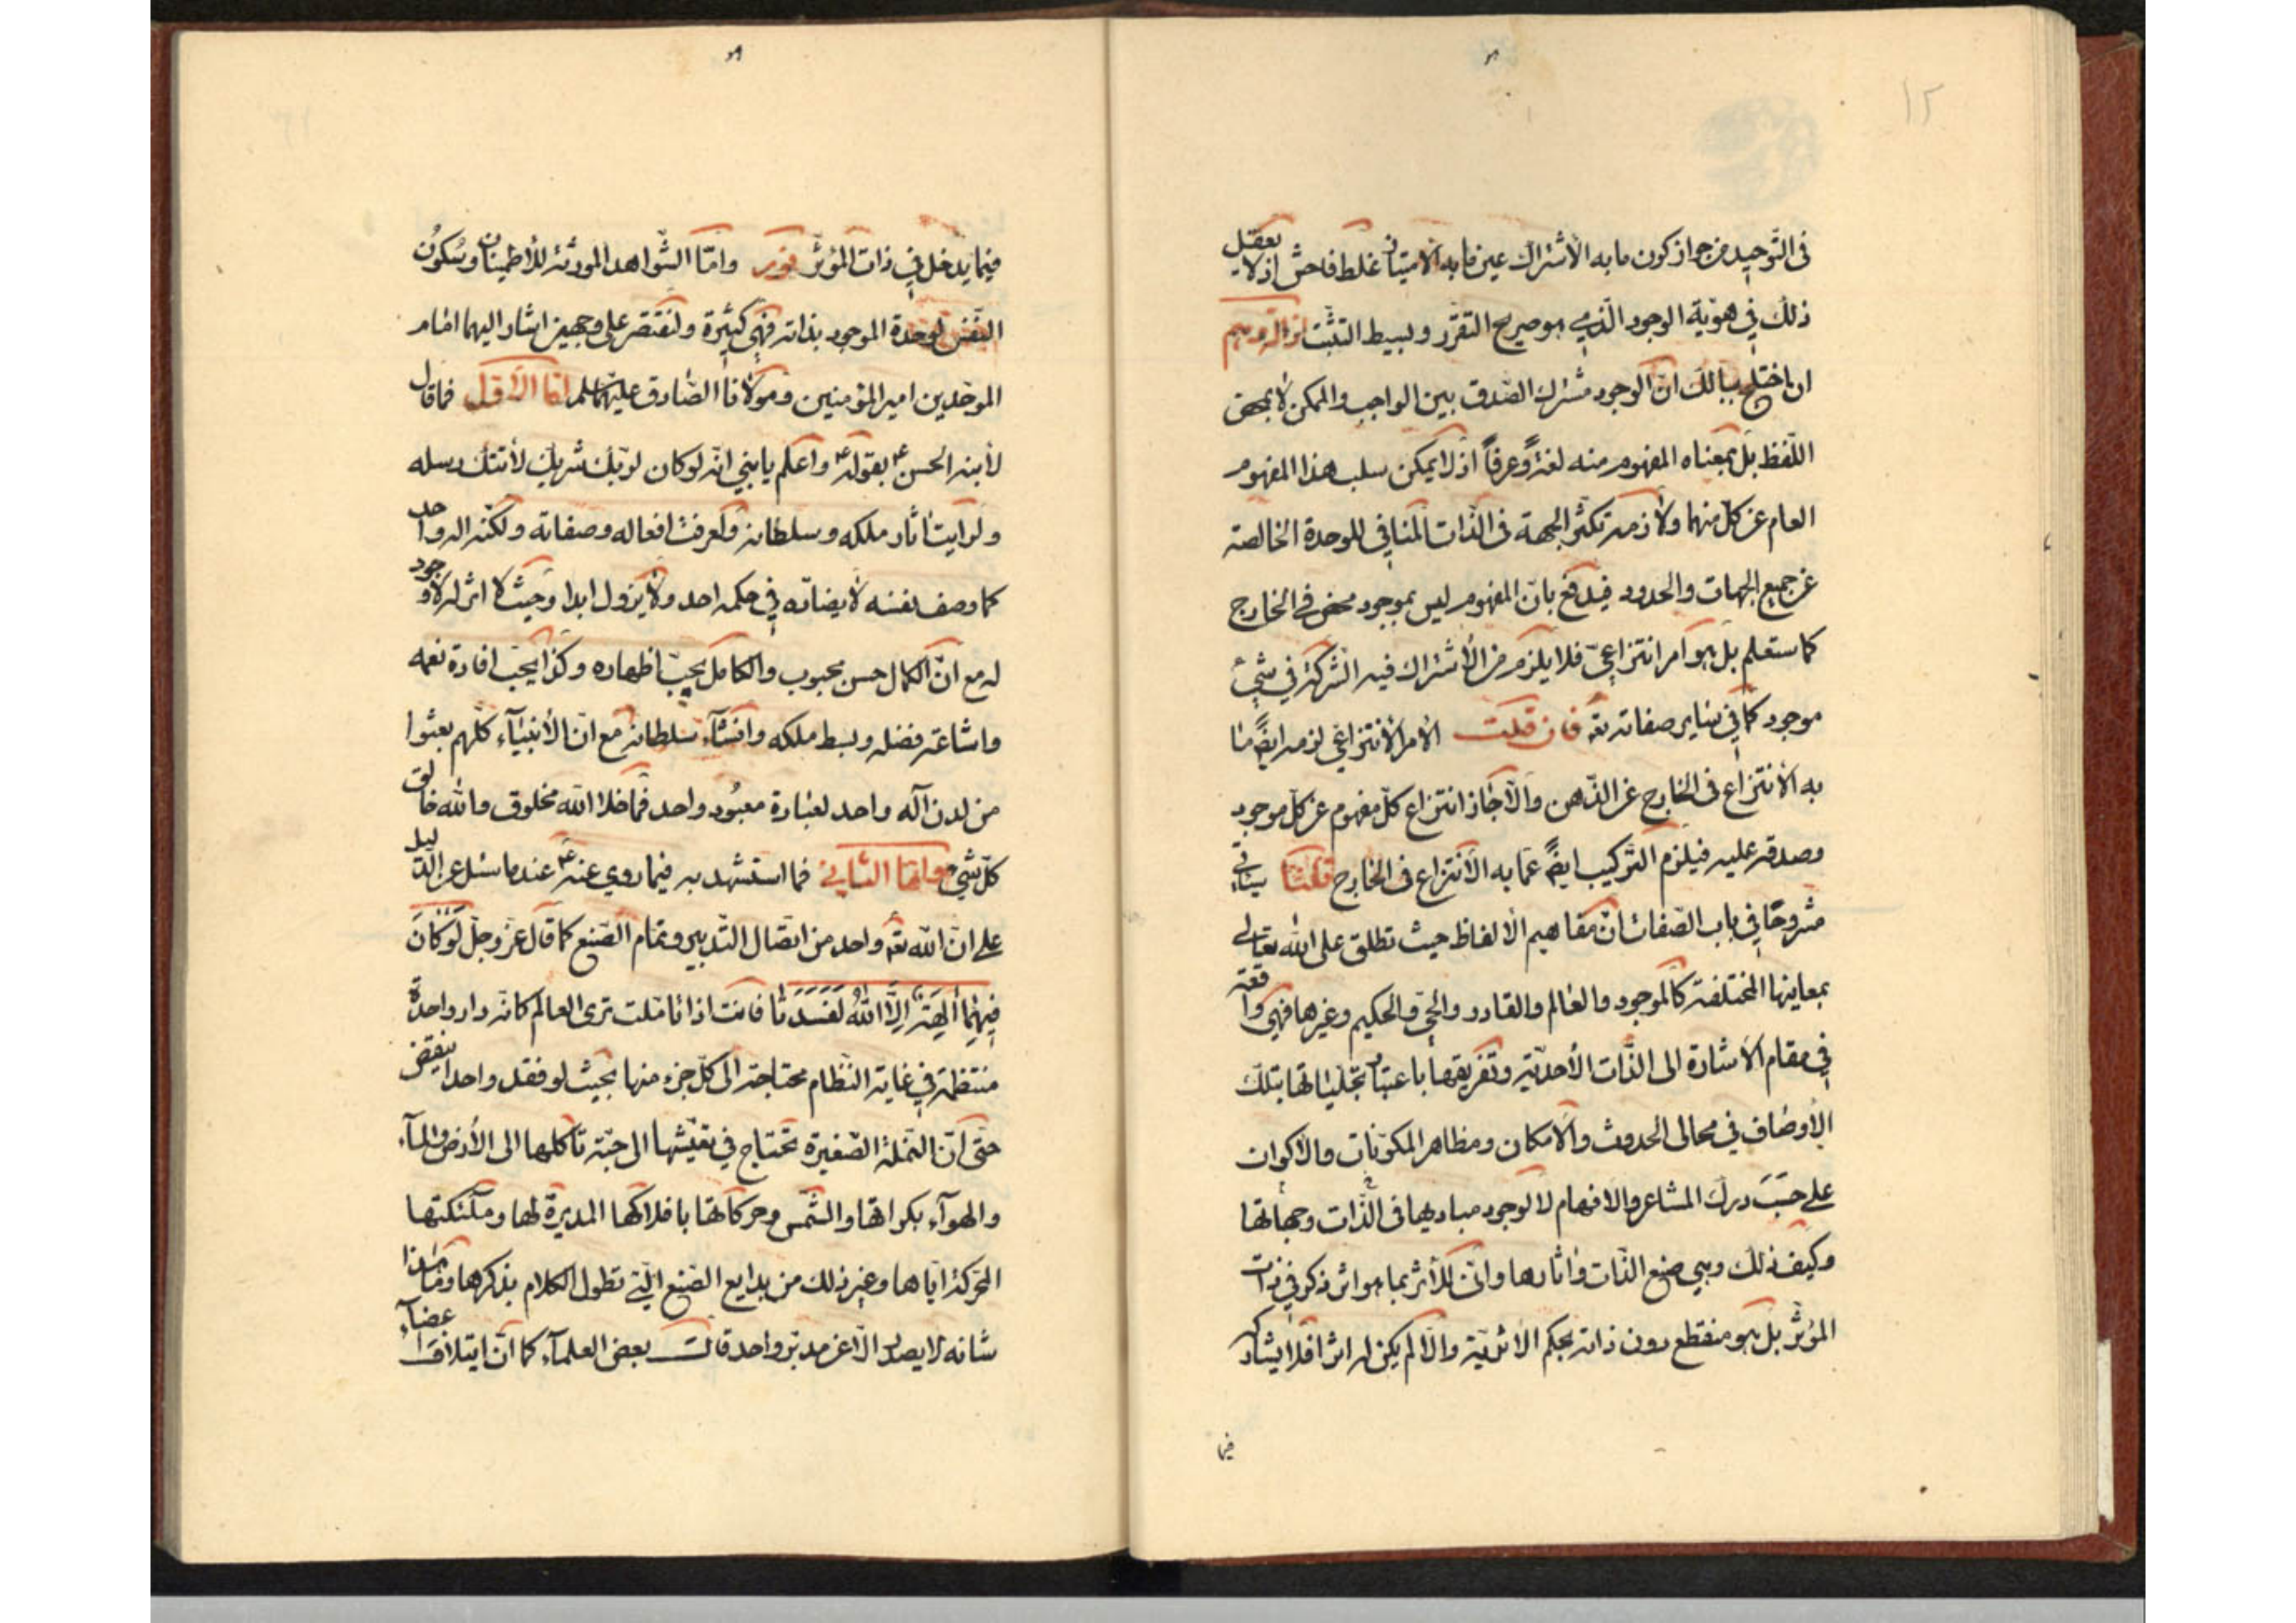 ١٢
فى التّوحيد من جواز كون ما به الاشتراك عين ما به الامتياز غلط فاحش اذ لا يعقل
ذلك في هويّة الوجود الّذي هو صريح التقرّر وبسيط التثبّت
ان اختلج ببالك انّ الوجود مشترك الصّدق بين الواجب والممكن لا بمحض
اللّفظ بل بمعناه المفهوم منه لغةً وعرفاً اذ لا يمكن سلب هذا المفهوم
العام عن كلّ منهما ولازمه تكثّر الجهة فى الذّات المنافي للوحدة الخالصة
عن جميع الجهات والحدود فيدفع بانّ المفهوم ليس بموجود محض في الخارج
كما ستعلم بل هو امر انتزاعيّ فلا يلزم من الأشتراك فيه الشّركة في شيء
موجود كما في ساير صفاته تع فان قلت الأمر الأنتزاعي لزمه ايضً ما
به الأنتزاع فى الخارج عن الذّهن والّا جاز انتزاع كلّ مفهوم عن كلّ موجود
وصدقه عليه فيلزم التّركيب ايضً عمّا به الأنتزاع فى الخارج قلنا سيأتي
مشروحًا في باب الصّفات انّ مفاهيم الألفاظ حيث تطلق على الله تعالى
بمعاينها المختلفة كالموجود والعالم والقادر والحيّ والحكيم وغيرها فهي واقعة
في مقام الأشارة الى الذّات الأحديّة وتفريقها باعتبار تجلّياتها بتلك
الأوصاف في مجالى الحدوث والأمكان ومظاهر المكوّنات والأكوان
على حسَبَ درك المشاعر والافهام لا لوجود مباديها فى الذّات وجهاتها
وكيف ذلك وهي صنع الذّات واثارها وانّى للأثر بما هو اثر ذكر في ذات
المؤثّر بل هو منقطع دون ذاته بحكم الاثريّة والّا لم يكن له اثرا فلا يشاركه
فيما
فيما يدخل في ذات المؤثّر نور وامّا الشّواهد المورثة للأطمينان وسُكون
النّفس لوحدة الموجود بذاته فهي كثيرة ولنقتصر على وجهين اشار اليهما امام
الموحّدين امير المؤمنين ومولانا الصّادق عليهما السلم امّا الأوّل فما قال
لأبنه الحسن ع بقوله ع واعلم يا بنيّ انّه لو كان لربّك شريك لأتتك رسله
ولرايت اثار ملكه وسلطانه ولعرفت افعاله وصفاته ولكنّه اله واحد
كما وصف نفسه لا يضادّه في حكمه احد ولا يزول ابدا وحيث لا اثر له لا وجود
له مع انّ الكمال حسن محبوب والكامل يحبّ اظهاره وكذا يحبّ افادة نعمه
واشاعة فضله وبسط ملكه وانشآء سلطانه مع انّ الأنبيآء كلّهم بعثوا
من لدن آله واحد لعبادة معبُود واحد فما خلا الله مخلوق والله خالق
كلّ شيء وامّا الثّاني فما استشهد به فيما روي عنه ع عند ما سئل عن الدّليل
على انّ الله تع واحد من اتّصال التّدبير وتمام الصّنع كما قال عزّ وجلّ لَوْ كانَ
فيهِمٰا آلِهَةٌ اِلَّا اللهُ لَفَسَدَتٰا فانت اذا تامّلت ترى العالم كانّه دار واحدة
منتظمة في غاية النّظام محتاجة الى كلّ جزء منها بحيث لو فقد واحد انتقض
حتّى انّ النّملة الصّغيرة تحتاج في تعيّشها الى حبّة تأكلها الى الأرض والمآء
والهوآء بكراتها والشّمس وحركاتها بافلاكها المديرة لها وملئكتها
المحركة ايّاها وغير ذلك من بدايع الصّنع الّتي تطول الكلام بذكرها وما هذا
شانه لا يصدر الّا عن مدبّر واحد قالت بعض العلمآء كما انّ ايتلاف اعضآء